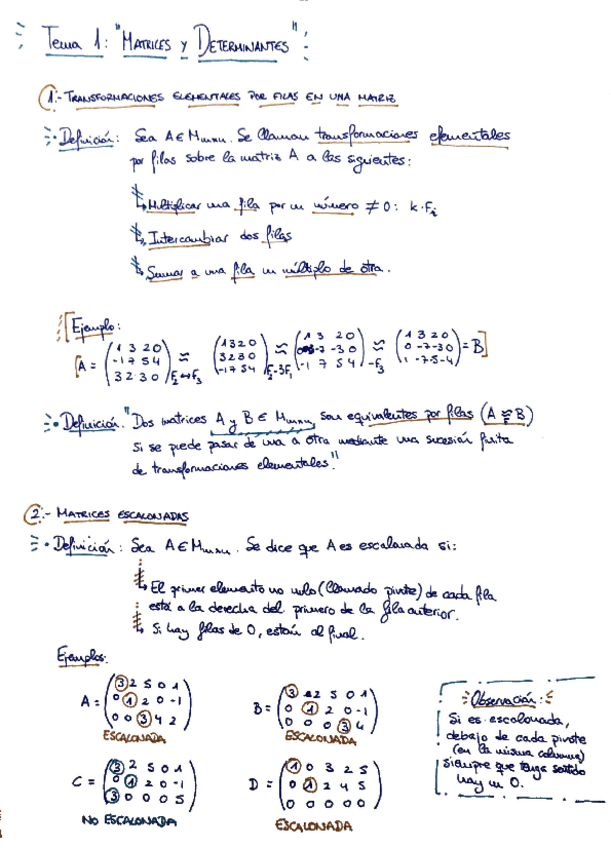 Tema 1: "MATRICES Y DETERMINANTES"
1.- TRANSFORMACIONES ELEMENTALES POR FILAS EN UNA MATRIZ
· Definición: Sea A ∈ Mmxn. Se llaman transformaciones elementales
por filas sobre la matriz A a las siguientes:
↳ Multiplicar una fila por un número ≠ 0: k·Fi
↳ Intercambiar dos filas
↳ Sumar a una fila un múltiplo de otra.
Ejemplo:
A = (1 3 2 0 / -1 7 5 4 / 3 2 3 0) F2↔F3 ≈ (1 3 2 0 / 3 2 3 0 / -1 7 5 4) F2-3F1 ≈ (1 3 2 0 / 0 -7 -3 0 / -1 7 5 4) -F3 ≈ (1 3 2 0 / 0 -7 -3 0 / 1 -7 -5 -4) = B
· Definición. "Dos matrices A y B ∈ Mmxn son equivalentes por filas (A ≈ B)
si se puede pasar de una a otra mediante una sucesión finita
de transformaciones elementales."
2.- MATRICES ESCALONADAS
· Definición: Sea A ∈ Mmxn. Se dice que A es escalonada si:
↳ El primer elemento no nulo (llamado pivote) de cada fila
está a la derecha del primero de la fila anterior.
↳ Si hay filas de 0, están al final.
Ejemplos:
A = (3 2 5 0 1 / 0 1 2 0 -1 / 0 0 3 4 2)
ESCALONADA
B = (3 2 5 0 1 / 0 1 2 0 -1 / 0 0 0 3 4)
ESCALONADA
C = (3 2 5 0 1 / 0 1 2 0 -1 / 3 0 0 0 5)
NO ESCALONADA
D = (1 0 3 2 5 / 0 1 2 4 5 / 0 0 0 0 0)
ESCALONADA
Observación:
Si es escalonada,
debajo de cada pivote
(en la misma columna)
siempre que tenga sentido
hay un 0.